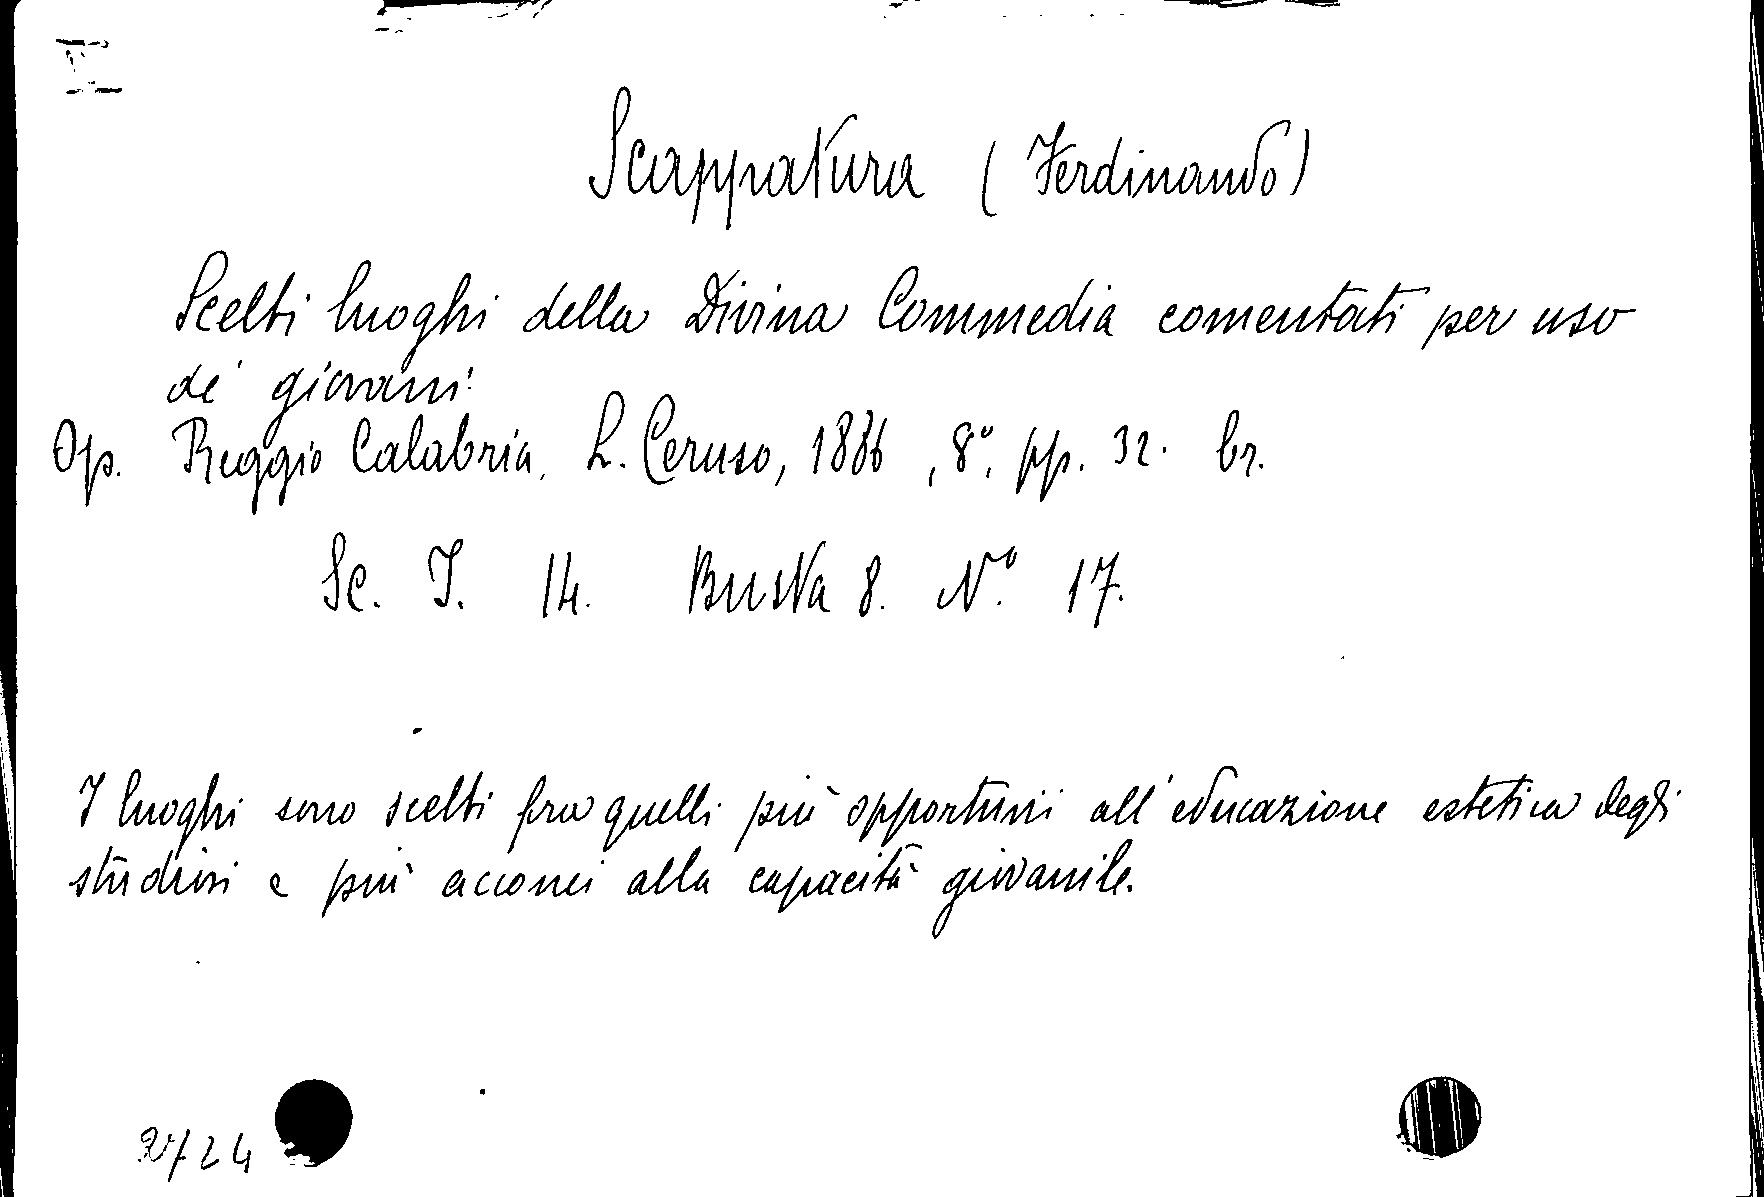 Scappatura (Ferdinando)
Scelti luoghi della Divina Commedia comentati per uso
de' giovani.
Op. Reggio Calabria, L. Ceruso, 1886, 8°, pp. 32. br.
Sc. I. 14. Busta 8. N.° 17.
I luoghi sono scelti fra quelli più opportuni all'educazione estetica degli
studiosi e più acconci alla capacità giovanile.